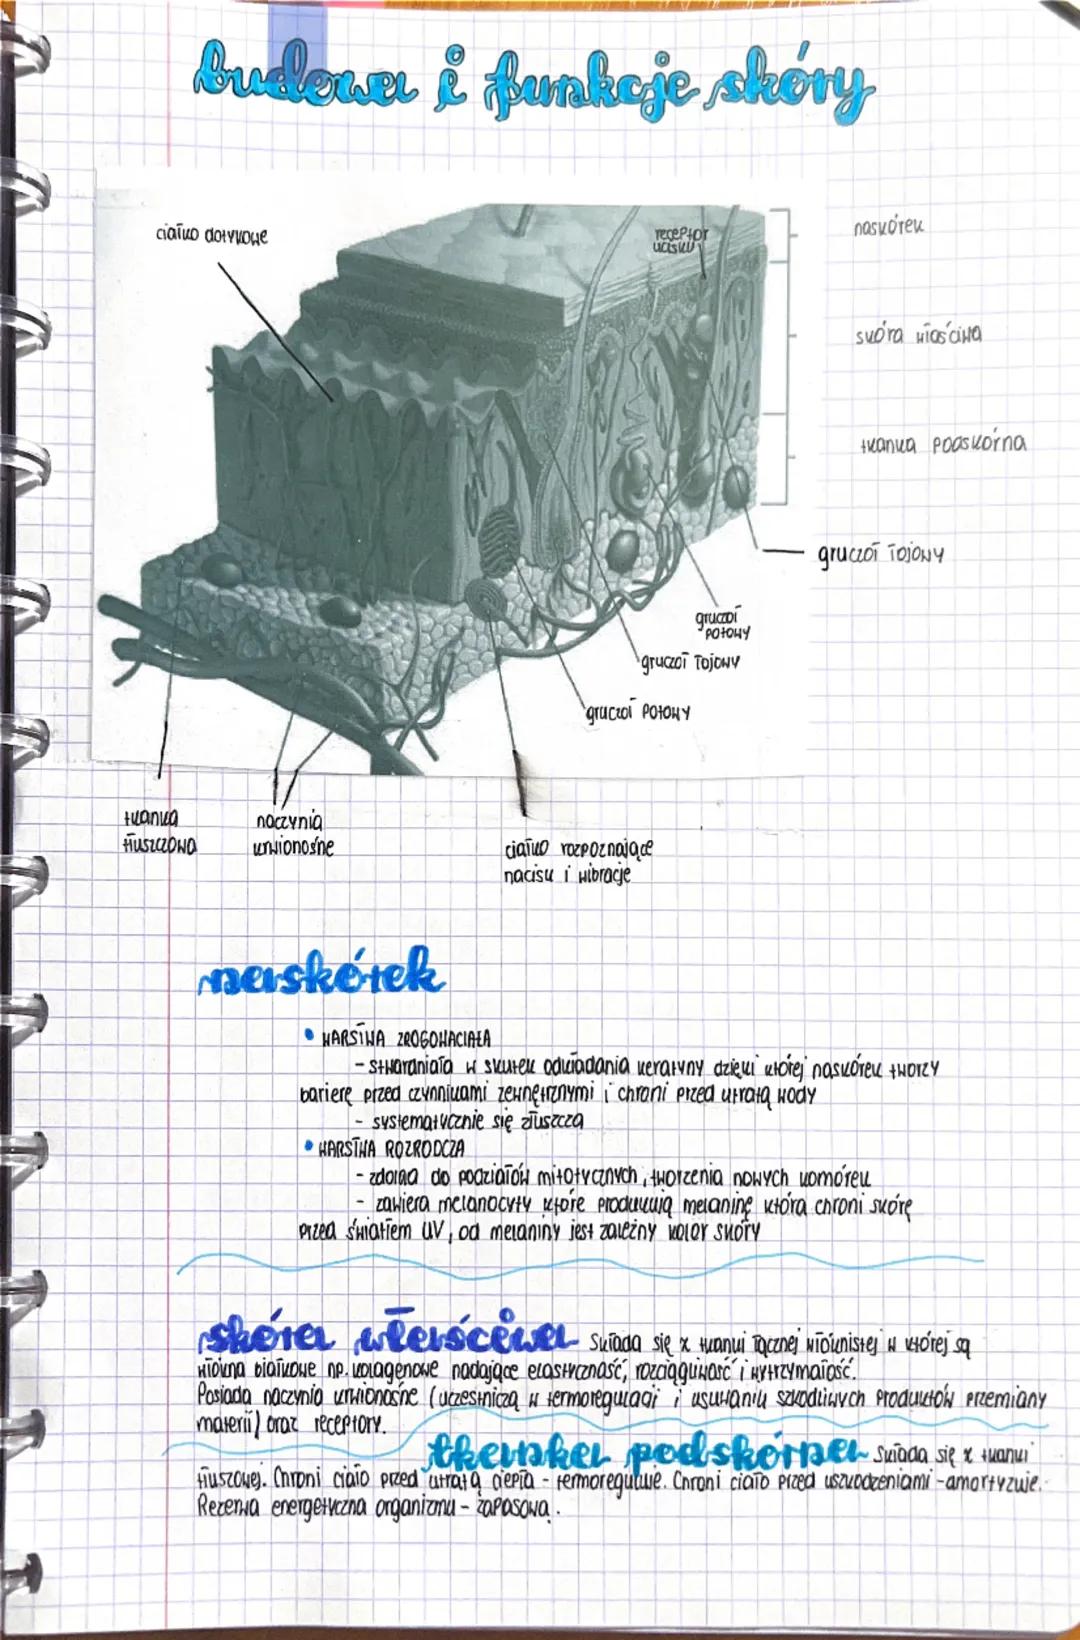 budowa i funkcje skóry
ciałko dotykowe
receptor
ucisku
naskórek
skóra właściwa
tkanka podskórna
gruczoł łojowy
gruczoł
potowy
gruczoł łojowy
gruczoł potowy
tkanka
tłuszczowa
naczynia
krwionośne
ciałko rozpoznające
nacisk i wibracje
naskórek
• WARSTWA ZROGOWACIAŁA
- stwardniała w skutek odkładania keratyny dzięki której naskórek tworzy
barierę przed czynnikami zewnętrznymi i chroni przed utratą wody
- systematycznie się złuszcza
• WARSTWA ROZRODCZA
- zdolna do podziałów mitotycznych, tworzenia nowych komórek
- zawiera melanocyty które produkują melaninę która chroni skórę
przed światłem UV, od melaniny jest zależny kolor skóry
skóra właściwa składa się z tkanki łącznej włóknistej w której są
włókna białkowe np. kolagenowe nadające elastyczność, rozciągliwość i wytrzymałość.
Posiada naczynia krwionośne (uczestniczą w termoregulacji i usuwaniu szkodliwych produktów przemiany
materii) oraz receptory.
tkanka podskórna składa się z tkanki
tłuszowej. Chroni ciało przed utratą ciepła - termoreguluje. Chroni ciało przed uszkodzeniami - amortyzuje.
Rezerwa energetyczna organizmu - zapasowa.